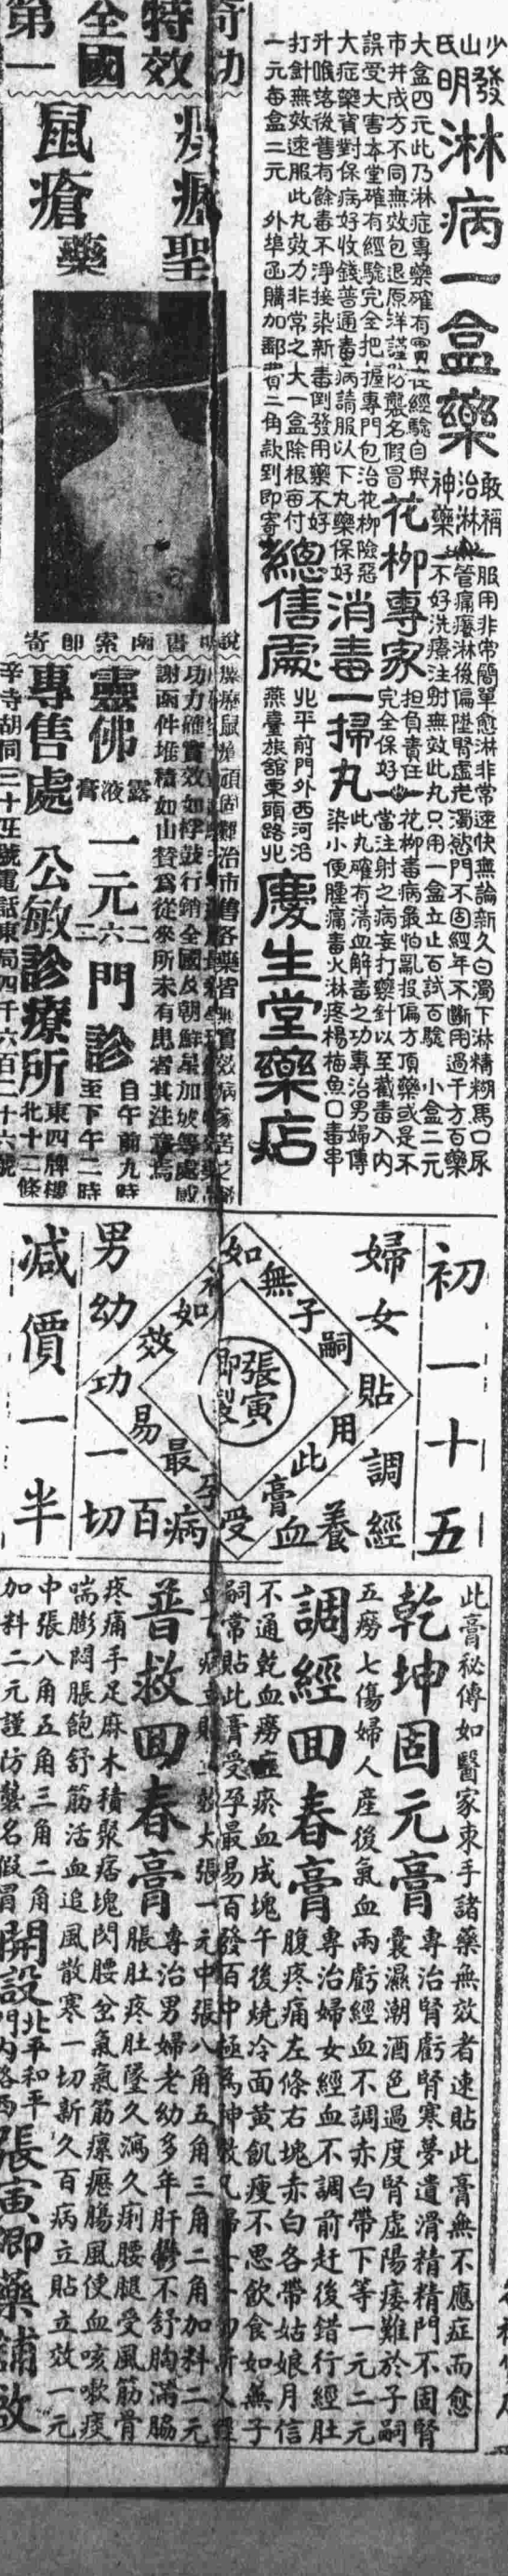 少山氏
發明
淋病一盒藥
敢稱治淋神藥
服用非常簡單愈淋非常速快無論新久白濁下淋精糊馬口尿
管痛癢淋後偏墜腎虛老濁慾門不固經年不斷用過千方百藥
不好洗療注射無效此丸只用一盒立止百試百驗 小盒二元
大盒四元此乃淋症專藥確有實在經驗自與
市井成方不同無效包退原洋謹防襲名假冒
花柳專家
担負責任
完全保好
花柳毒病最怕亂投偏方頂藥或是不
當注射之病妄打藥針以至截毒入內
誤受大害本堂確有經驗完全把握專門包治花柳險惡
大症藥資對保病好收錢普通毒病請服以下丸藥保好
消毒一掃丸
此丸確有清血解毒之功專治男婦傳
染小便腫痛毒火淋疼楊梅魚口毒串
升喉落後舊有餘毒不淨接染新毒倒發用藥不好
打針無效速服此丸效力非常之大一盒除根再付
一元每盒二元 外埠函購加郵費二角款到即寄
總售處
北平前門外西河沿
燕臺旅舘東頭路北
慶生堂藥店
奇功
特效
全國
第一
聖藥
鼠瘡
說明書函索即寄
功力確實效如桴鼓行銷全國及朝鮮星加坡等處感
謝函件堆積如山贊爲從來所未有患者其注意焉
靈佛
露液膏
一元
二六二
門診
自午前九時
至下午二時
專售處
公敏診療所
東四牌樓
北十二條
辛寺胡同二十五號電話東局四千六百二十六號
初一十五
婦女
調經養血
如無子嗣貼用此膏受孕最易功效如神
張寅卿製
男幼一切百病
減價一半
此膏秘傳如醫家束手諸藥無效者速貼此膏無不應症而愈
乾坤固元膏
專治腎虧腎寒夢遺滑精精門不固腎
囊濕潮酒色過度腎虛陽痿難於子嗣
五癆七傷婦人產後氣血兩虧經血不調赤白帶下等一元二元
調經回春膏
專治婦女經血不調前赶後錯行經肚
腹疼痛左條右塊赤白各帶姑娘月信
不通乾血癆症瘀血成塊午後燒冷面黃飢瘦不思飲食如無子
嗣常貼此膏受孕最易百發百中極爲神效
大張一元中張八角五角三角二角加料二元
普救回春膏
專治男婦老幼多年肝鬱不舒胸滿脇
脹肚疼肚墜久瀉久痢腰腿受風筋骨
疼痛手足麻木積聚痞塊閃腰岔氣氣筋瘰癧腸風便血咳嗽痰
喘膨悶脹飽舒筋活血追風散寒一切新久百病立貼立效一元
中張八角五角三角二角
加料二元謹防襲名假冒
開設
北平和平
門內路西
張寅卿藥舖啟